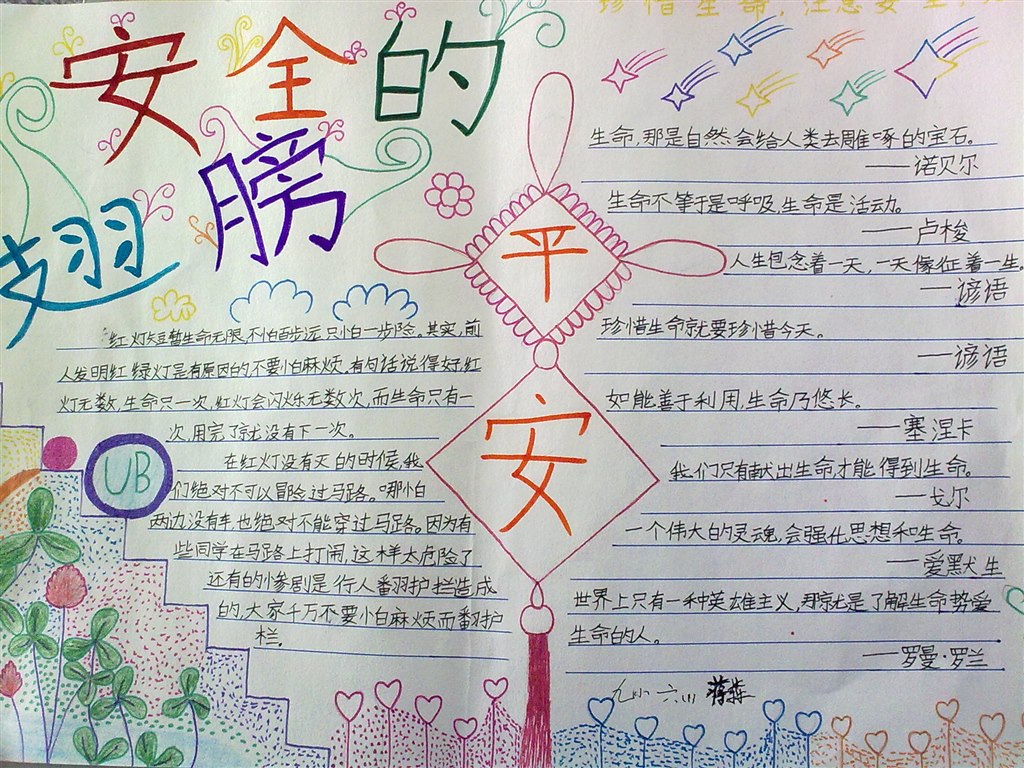 珍惜生命,注意安全
安全的
翅膀
平
安
红灯短暂生命无限,不怕百步远,只怕一步险。其实,前
人发明红绿灯是有原因的不要怕麻烦,有句话说得好,红
灯无数,生命只一次,红灯会闪烁无数次,而生命只有一
次,用完了就没有下一次。
在红灯没有灭的时候,我
们绝对不可以冒险过马路。哪怕
两边没有车也绝对不能穿过马路。因为有
些同学在马路上打闹,这样太危险了
还有的惨剧是行人翻护拦造成
的,大家千万不要怕麻烦而翻护
栏。
UB
生命,那是自然会给人类去雕啄的宝石。
——诺贝尔
生命不等于是呼吸,生命是活动。
——卢梭
人生包含着一天,一天像征着一生。
——谚语
珍惜生命就要珍惜今天。
——谚语
如能善于利用,生命乃悠长。
——塞涅卡
我们只有献出生命,才能得到生命。
——戈尔
一个伟大的灵魂,会强化思想和生命。
——爱默生
世界上只有一种英雄主义,那就是了解生命势爱
生命的人。
——罗曼·罗兰
九小 六